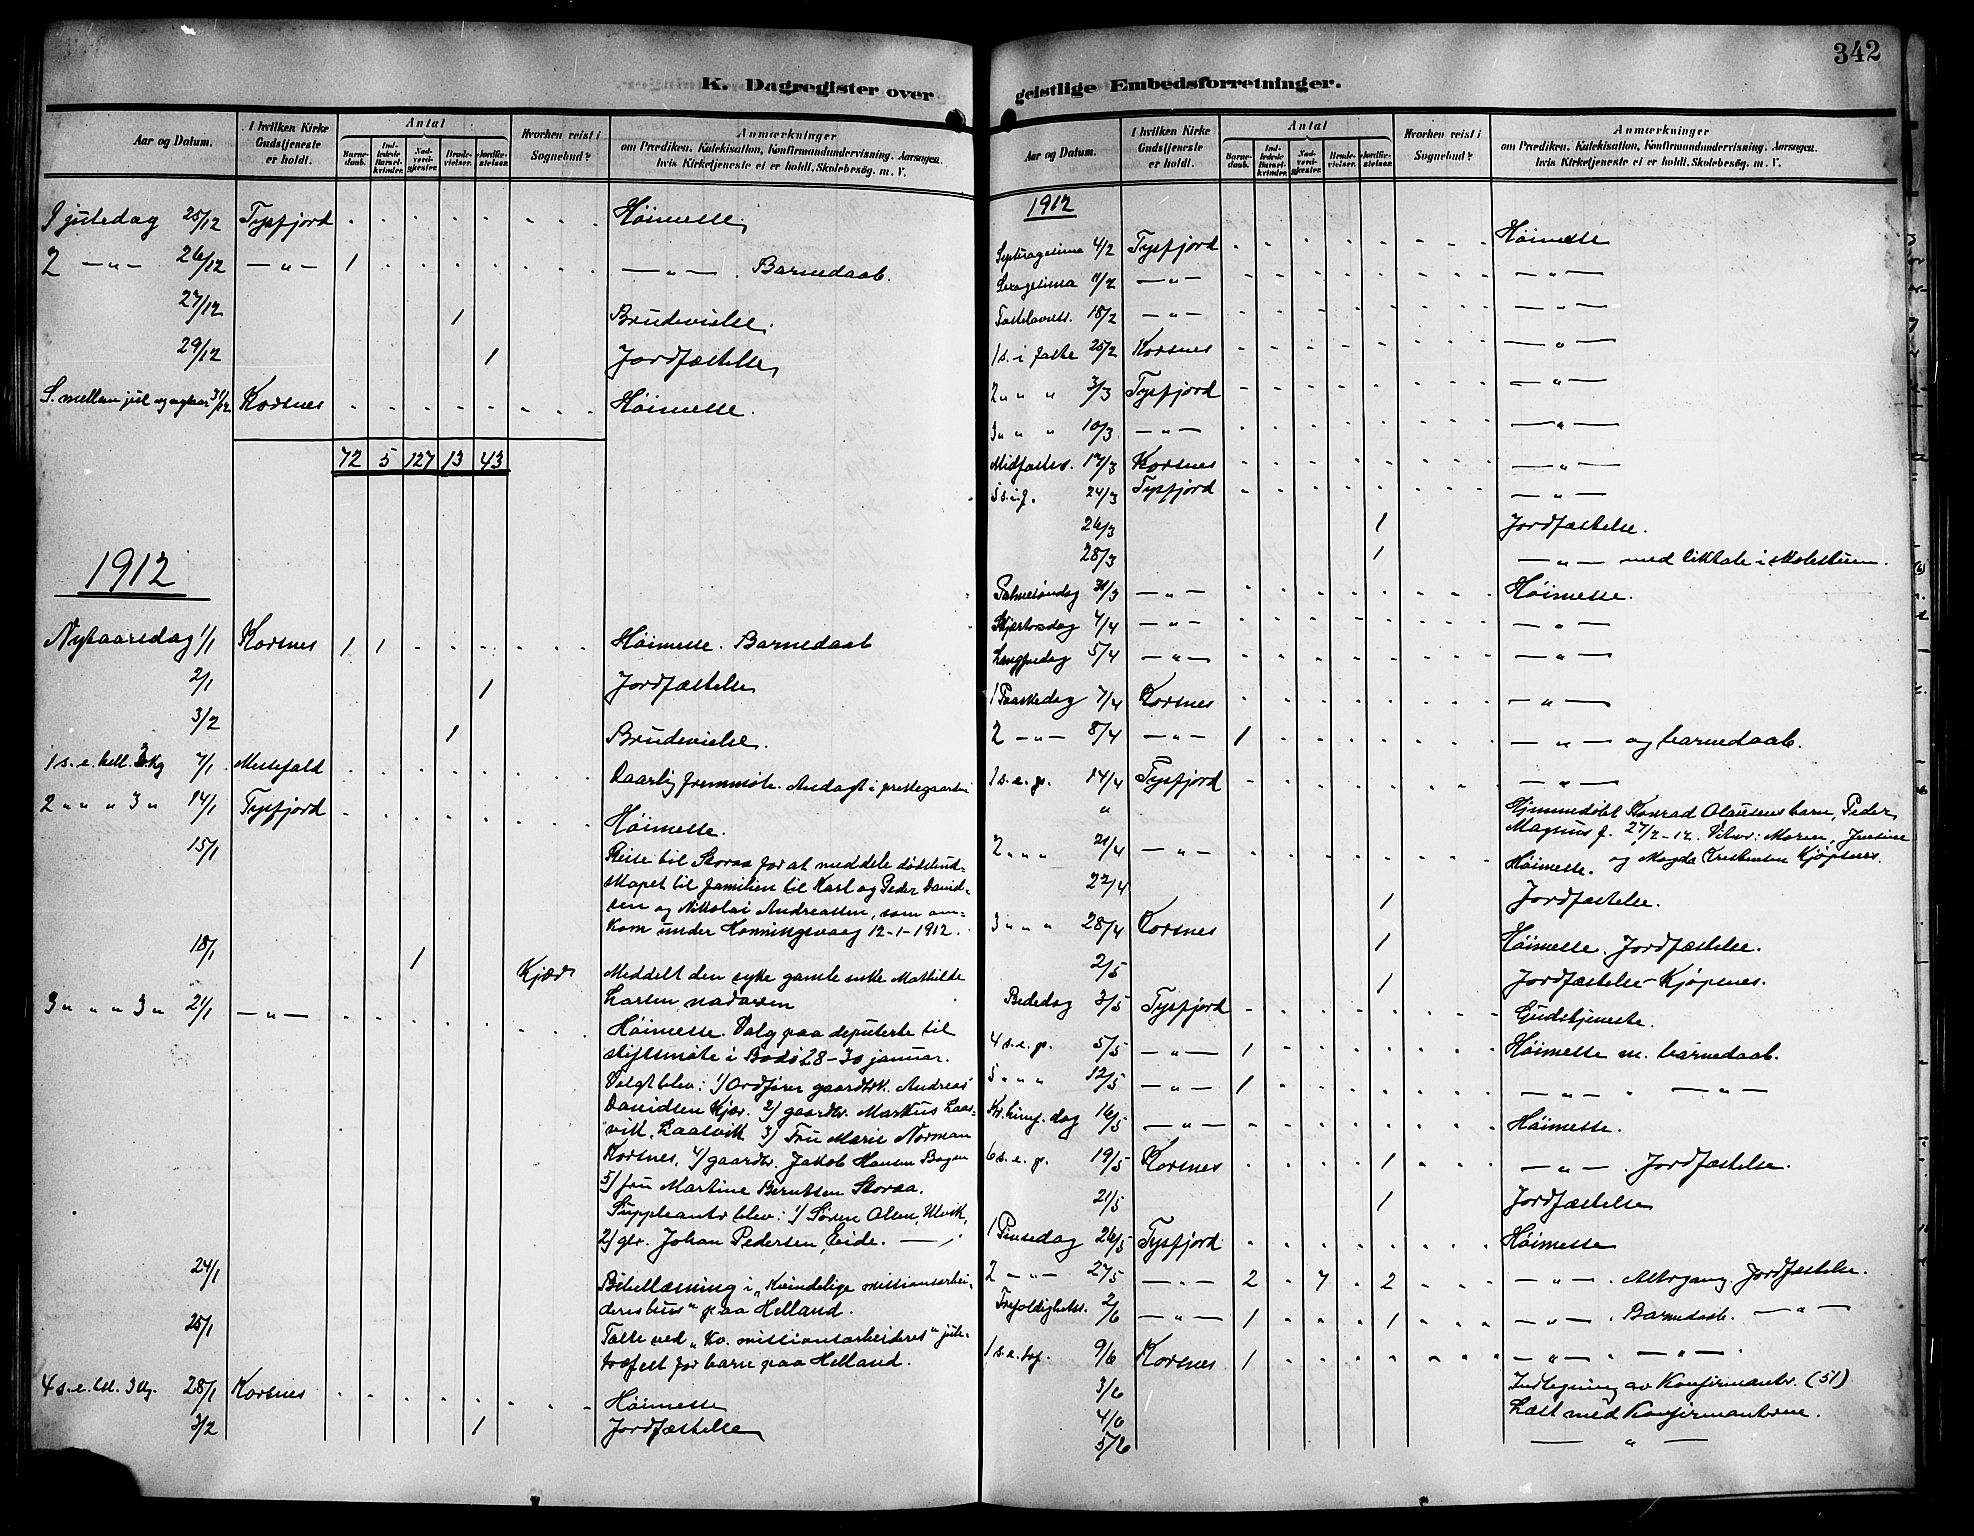 342
K. Dagregister over geistlige Embedsforretninger.
Aar og Datum. I hvilken Kirke Gudstjeneste er holdt. Antal Barnedaab. Indledede Barselkvinder. Nadverdgjester. Brudevielser. Jordfæstelser. Hvorhen reist i Sognebud? Anmærkninger om Prædiken, Katekisation, Konfirmandundervisning, Aarsagen, hvis Kirketjeneste ei er holdt, Skolebesøg m. V.
I juledag 25/12 Tysfjord Høimesse.
2 — " — 26/12 — " — 1 — " — . Barnedaab.
27/12 1 Brudevielse.
29/12 1 Jordfæstelse,
S. mellem jul og nytaar 31/12 Korsnes Høimesse.
72 5 127 13 43
1912
Nytaarsdag 1/1 Korsnes 1 1 Høimesse. Barnedaab
2/1 1 Jordfæstelse
3/2 1 Brudevielse.
1 s. e. hell. 3 kg 7/1 Messefald Daarlig fremmøte. Andagt i prestegaarden
2 " " " 3 " 14/1 Tysfjord Høimesse.
15/1 Reise til Storaa for at meddele dødsbud-
skapet til familien til Karl og Peder David-
sen og Nikolai Andreassen, som om-
kom under Honningsvaag 12-1-1912.
18/1 1 Kjær Meddelt den syke gamle enke Mathilde
Larsen nadveren
3 " " " 3 " 21/1 — " — Høimesse. Valg paa deputerte til
stiftsmøte i Bodø 28-30 januar.
Valgt blev: 1) Ordfører gaardbr. Andreas
Davidsen Kjær. 2) gaardbr. Markus Laas-
vik, Laasvik 3) Fru Marie Norman
Korsnes, 4) gaardbr. Jakob Hansen Bogen
5) fru Martine Berntsen Storaa.
Suppleanter blev: 1) Søren Olsen, Ulvik,
2) gbr. Johan Pedersen, Eide. —
24/1 Bibellæsning i "Kvindelige missionsarbei-
deres hus" paa Helland.
25/1 Talte ved "Kv. missionsarbeideres" jule-
træfest for barn paa Helland.
4 s. e. hll. 3 kg. 28/1 Korsnes Høimesse
3/2 1 Jordfæstelse
Aar og Datum. I hvilken Kirke Gudstjeneste er holdt. Antal Barnedaab. Indledede Barselkvinder. Nadverdgjester. Brudevielser. Jordfæstelser. Hvorhen reist i Sognebud? Anmærkninger om Prædiken, Katekisation, Konfirmandundervisning, Aarsagen, hvis Kirketjeneste ei er holdt, Skolebesøg m. V.
1912
Septuagesima 4/2 Tysfjord Høimesse
Sexagesima 11/2 — " — — " —
Fastelavnss. 18/2 — " — — " —
1 s. i faste 25/2 Korsnes — " —
2 " " " 3/3 Tysfjord — " —
3 " " " 10/3 — " — — " —
Midfastes. 17/3 Korsnes — " —
5 s. i f. 24/3 Tysfjord — " —
26/3 1 Jordfæstelse.
28/3 1 — " — med liktale i
Palmesøndag 31/3 — " — Høimesse.
Skjærtorsdag 4/4 — " — — " —
Langfredag 5/4 — " — — " —
1 Paaskedag 7/4 Korsnes — " —
2 — " — 8/4 — " — 1 — " — og barnedaab.
1 s. e. p. 14/4 Tysfjord — " —
" Hjemmedøbt Konrad Olausens barn, Peder
Magnus f. 27/2-12. Vitner: Maren, Jensine
og Magda Kristensen Kjøpsnes.
2 " " " 21/4 — " — Høimesse.
22/4 1 Jordfæstelse.
3 " " " 28/4 Korsnes 1 Høimesse. Jordfæstelse.
2/5 1 Jordfæstelse - Kjøpsnes.
Bededag 3/5 Tysfjord Gudstjeneste.
4 s. e. p. 5/5 — " — 1 Høimesse m. barnedaab.
5 " " " 12/5 — " — 1 — " — " — " —
Kr. himf. dag 16/5 — " — Høimesse.
6 s. e. p. 19/5 Korsnes 1 — " — . Jordfæstelse.
21/5 1 Jordfæstelse
1 Pinsedag 26/5 Tysfjord Høimesse
2 — " — 27/5 — " — 2 7 2 — " — . Altergang. Jordfæstelse.
Trefoldighets. 2/6 — " — 1 1 — " — . Barnedaab. — " —
1 s. e. tref. 9/6 Korsnes 1 — " — . — " — .
3/6 Indtegning av Konfirmanter. (51)
4/6 Læst med Konfirmanterne.
5/6 — " —